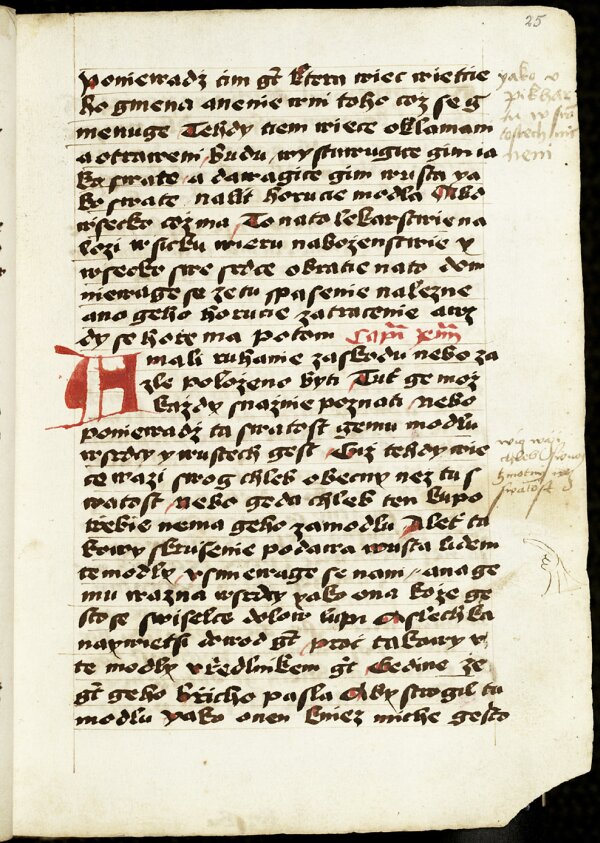 25
poniewadz tim gt ktera wiec wietcie
ho gmena a nenie w ni toho coz se g
menuge Tehdy tiem wiece oklamani
a otraweni budu wystawugice gim ia
ko swate a dawagice gim w usta ya
ko swate nalit horucie modla Abo
wsecko coz ma To na to lekarstwie na
lozi w sicku wieru nabozenstwie y
wsecko swe srdce obratie na to dom
niewage se ze tu spasenie nalezne
ano geho horucie zatracenie a toz
dy se hore ma potom Capm xiii
A mali ruhanie za skodu nebo za
zle polozeno byti Tut ge moz
kazdy snaznie poznati nebo
poniewadz ta swatost gemu modlu
w srdcy y w ustech gest Giz tehdy wie
ce wazi swog chleb obecny nez tu s
watost nebo geda chleb ten kupo
trebie nema geho za modlu Alet ta
kowy skrusenie podawa w usta lidem
te modly y smiewage se nam ana ge
mu wazna w srdcy yako ona koze ge
sto se swiselce dolow lupi Aslechka
naywietsi dowod gt proc takowy v
te modly vrzedlnikem gt Gedine ze
gt geho bricho pasla Aby strogil tu
modlu yako onen kniez miche gesto
yako v
pikhar
tu w swa
tostech
neni
wiz
chleb
swatost